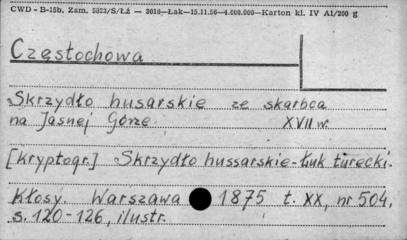 CWD - B-15b. Zam. 5823/S/Łź — 3016—Łak—15.11.56—4.000.000—Karton kl. IV A1/200 g
Częstochowa
Skrzydło husarskie ze skarbca
na Jasnej Górze XVII w.
[kryptogr.] Skrzydło hussarskie-łuk turecki.
Kłosy. Warszawa 1875 t. XX, nr 504,
s. 120-126, ilustr.